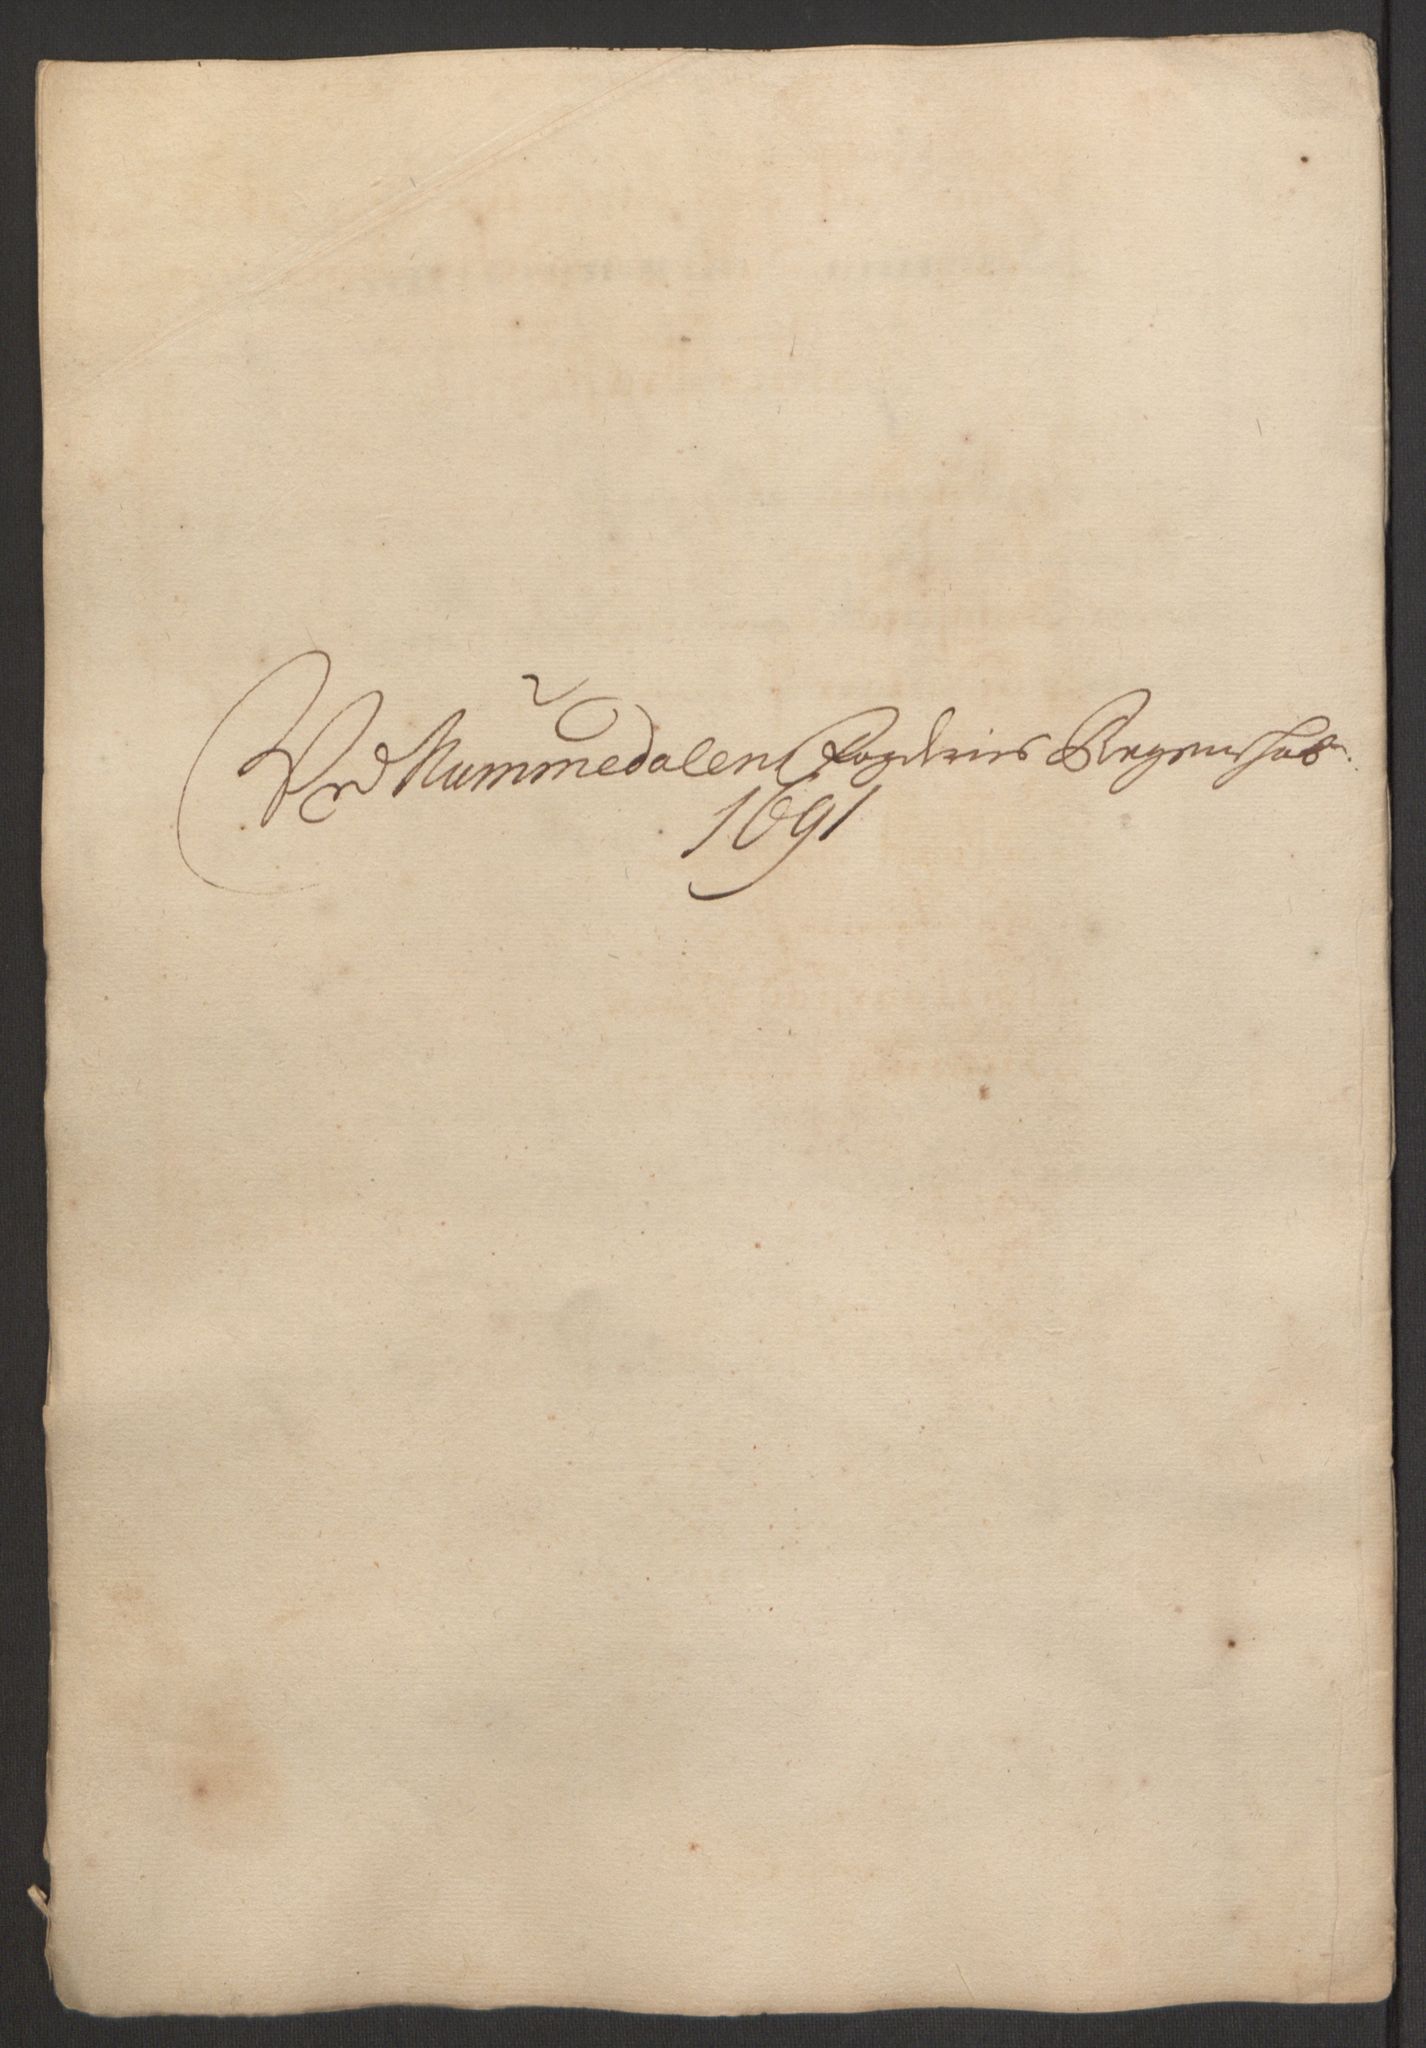 Ved Nummedalens Fogderies Regenskab.
1691